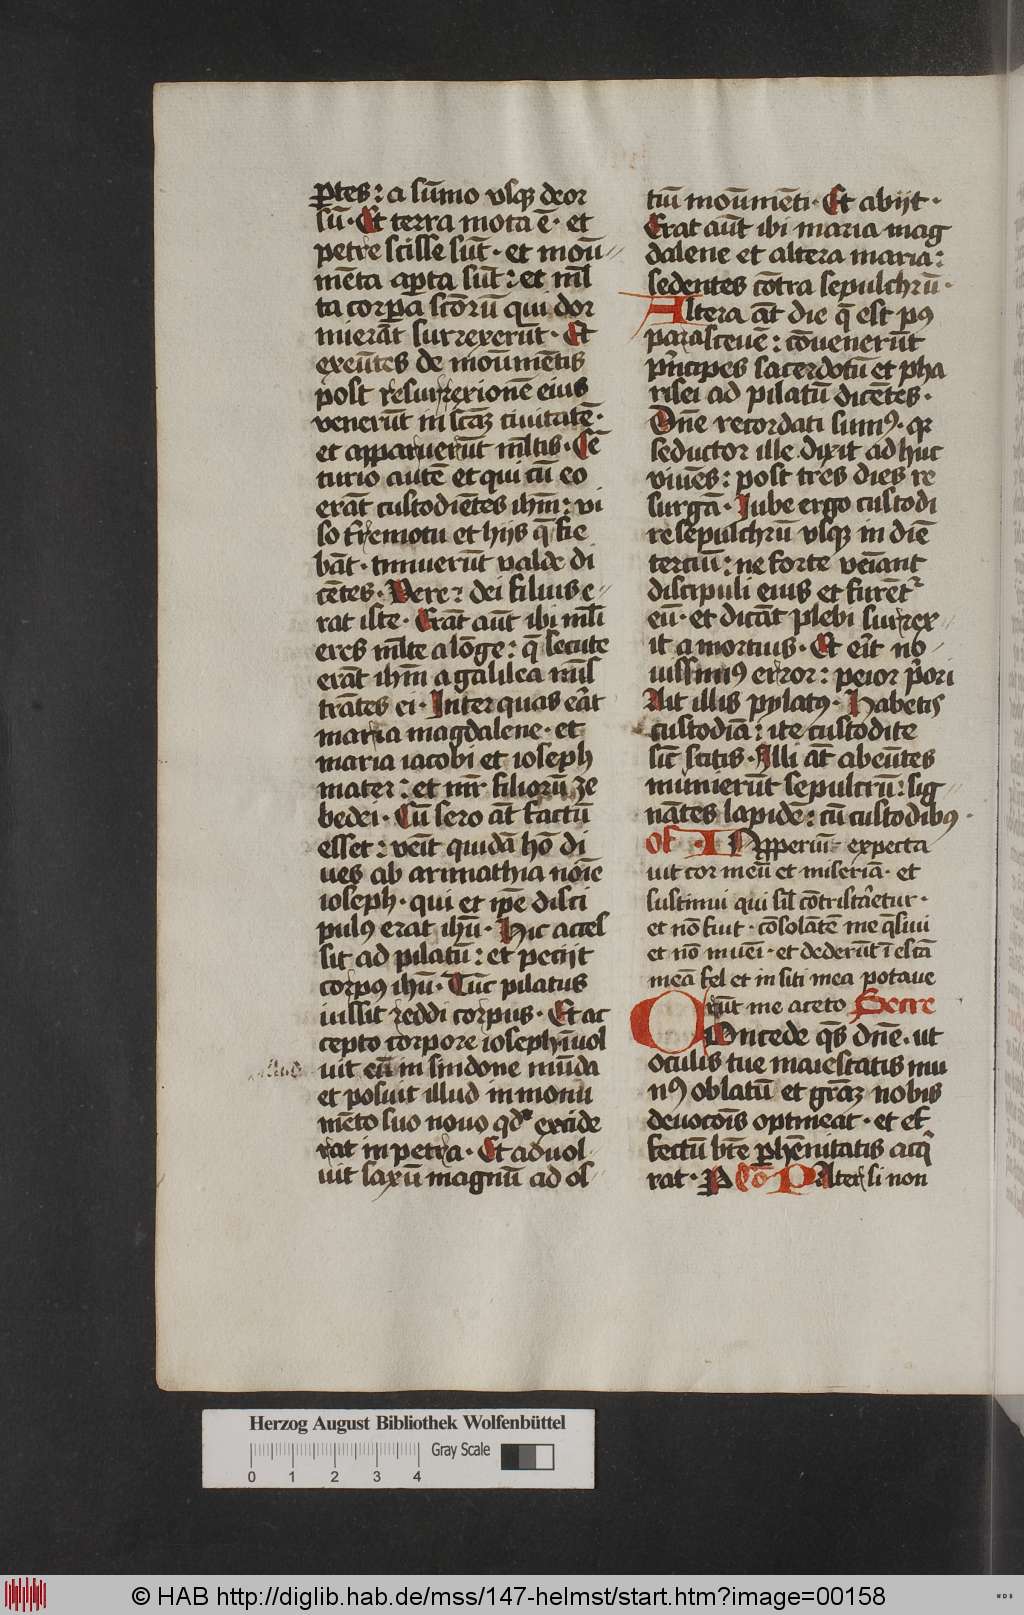 ꝑtes: a sūmo vsqꝫ deor
sū· Et terra mota ē· et
petre scisse sūt· et moū//
mēta aꝑta sūt: et ml̄
ta corꝑa scōrū qui dor
mierāt surrexerūt· Et
exeūtes de moūmētis
post resurrexionē eius
venerūt in scāꝫ ciuitatē·
et apparuerūt ml̄tis· Cē
turio autē et qui cū eo
erāt custodiētes ihm̄: vi
so t̄remotu et hijs q̄ fie
bāt· timuerūt valde di
cētes· Vere: dei filius e-
rat iste· Erāt aūt ibi ml̄i
eres ml̄te a lōge: q̄ secute
erāt ihm̄ a galilea mīs
trātes ei· Inter quas eāt
maria magdalene· et
maria iacobi et ioseph
mater: et mr̄ filiorū ze
bedei· Cū sero āt factū
esset: veīt quidā hō di
ues ab arimathia noīe
ioseph· qui et ip̄e disci
pulꝰ erat ihū· Hic acces
sit ad pilatū: et pecijt
corpꝰ ihū· Tūc pilatus
iussit reddi corpus· Et ac
cepto corpore ioseph īuol
uit eū in sindone mūda
et posuit illud in monu
mēto suo nouo qd̄ excide
rat in petra· Et aduol-
uit saxū magnū ad os-
illud
tiū moūmēti· Et abijt·
Erat aūt ibi maria mag
dalene et altera maria:
sedentes cōtra sepulchrū·
Altera āt die q̄ est pꝰ
parasceuē: cōuenerūt
pͥncipes sacerdotū et pha
risei ad pilatū dicētes·
Dn̄e recordati sumꝰ· qꝛ
seductor ille dixit adhuc
viuēs: post tres dies re
surgā· Iube ergo custodi
re sepulchrū vsqꝫ in diē
terciū: ne forte veīant
discipuli eius et furēt͛
eū· et dicāt plebi surrex-
it a mortuis· Et eīt no-
uissimꝰ error: peior pͥori
Ait illis pylatꝰ· Habetis
custodiā: ite custodite
sic̄ scitis· Illi āt abeūtes
munierūt sepulcrū: sig-
nātes lapidē: cū custodibꝰ·
Of· INpperiū- expecta
uit cor meū et miseriā· et
sustinui qui sil̄ cōtristaret͛ur·
et nō fuit· cōsolātē me q̄siui
et nō inueī· et dederūt ī escā
meā fel et in siti mea potaue
rūt me aceto Secre
COncede qs̄ dn̄e· ut
oculis tue maiestatis mu
nꝰ oblatū et grāꝫ nobis
deuocōis optineat· et ef-
fectū bt̄e ꝑhēnitatis acqͥ
rat· P Cō PAter si non
© HAB http://diglib.hab.de/mss/147-helmst/start.htm?image=00158
Herzog August Bibliothek Wolfenbüttel
Gray Scale
0 1 2 3 4